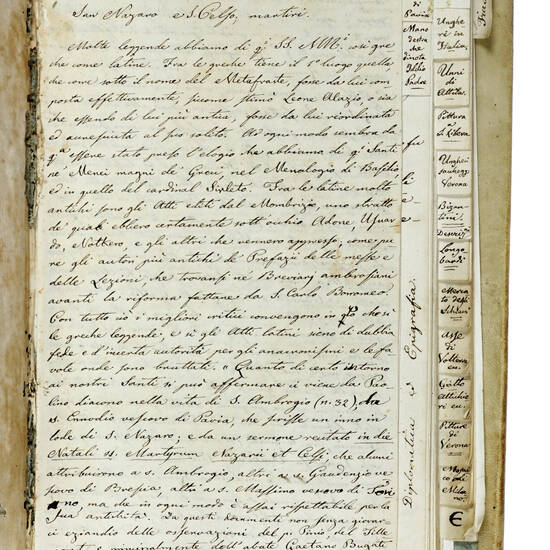 San Nazaro e S. Celso, martiri.
Molte leggende abbiamo di qᵗⁱ SS. MMⁱ. così gre
che come latine. Fra le greche tiene il 1º luogo quella
che corre sotto il nome del Metafraste, fosse da lui com
posta effettivamente, siccome stimò Leone Alazio, o sia
che essendo di lui più antica, fosse da lui riordinata
ed accresciuta al suo solito. Ad ogni modo sembra da
qᵗᵃ essere stato preso l'elogio che abbiamo di qᵗⁱ Santi
ne' Menei magni de' Greci, nel Menologio di Basilio
ed in quello del cardinal Sirleto. Fra le latine molto
antichi sono gli Atti editi dal Mombrizio, uno stratto
de' quali ebbero certamente sott'occhio Adone, Usuar
do, Notkero, e gli altri che vennero appresso; come pu
re gli autori più antichi de' Prefazii delle messe e
delle Lezioni, che trovansi ne' Breviarj ambrosiani
avanti la riforma fattane da S. Carlo Borromeo.
Con tutto ciò i migliori critici convengono in qᵗᵒ che sì
le greche leggende, e sì gli Atti latini sieno di dubbia
fede e d'incerta autorità per gli anacronismi e le fa
vole onde sono bruttati. Quanto di certo intorno
ai nostri Santi si può affermare ci viene da Pao
lino diacono nella vita di S. Ambrogio (n. 32), da
S. Ennodio vescovo di Pavia, che scrisse un inno in
lode di S. Nazaro; e da un sermone recitato in die
Natali ss. Martyrum Nazarii et Celsi, che alcuni
attribuirono a s. Ambrogio, altri a s. Gaudenzio ve
scovo di Brescia, altri a s. Massimo vescovo di Tori
no, ma che in ogni modo è assai rispettabile per la
sua antichità. Da questi documenti non senza giovar
ci eziandio delle osservazioni del p. Pinio, del Tille
mont e principalmente dell'abate Gaetano Bugati
di
Pavia
Mano
destra
che
dinota
Iddio
Padre
Diplomatica ed Epigrafia.
Unghe
ri in
Italia.
Unni
di
Attila.
Pittura
a
S. Libera
Ungheri
saccheggi
Verona
Bizan
tini.
Descriz
Longo
bardi
Merca
to degli
Schiavi
Asse
di
Volterra
ec.
Gotto
Attichie
ri ec.
Pitture
di
Verona
Mosai
co di
Mila
no.
E